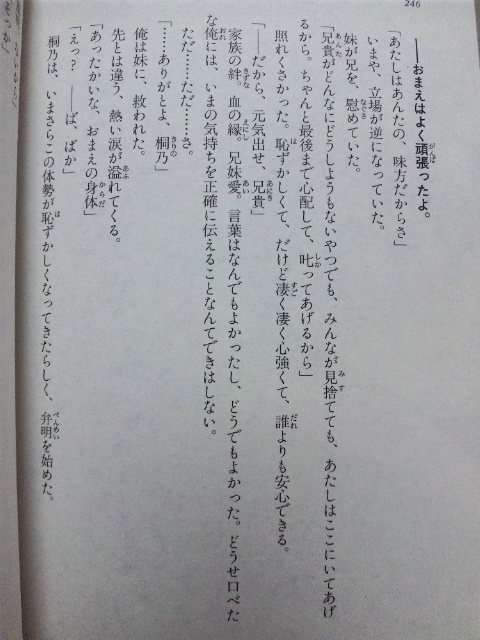 246
――おまえはよく頑張ったよ。
「あたしはあんたの、味方だからさ」
いまや、立場が逆になっていた。
妹が兄を、慰めていた。
「兄貴がどんなにどうしようもないやつでも、みんなが見捨てても、あたしはここにいてあげ
るから。ちゃんと最後まで心配して、叱ってあげるから」
照れくさかった。恥ずかしくて、だけど凄く凄く心強くて、誰よりも安心できる。
「――だから、元気出せ、兄貴」
家族の絆。血の縁。兄妹愛。言葉はなんでもよかったし、どうでもよかった。どうせ口べた
な俺には、いまの気持ちを正確に伝えることなんてできはしない。
ただ……ただ……さ。
「……ありがとよ、桐乃」
俺は妹に、救われた。
先とは違う、熱い涙が溢れてくる。
「あったかいな、おまえの身体」
「えっ？　――ば、ばか」
桐乃は、いまさらこの体勢が恥ずかしくなってきたらしく、弁明を始めた。